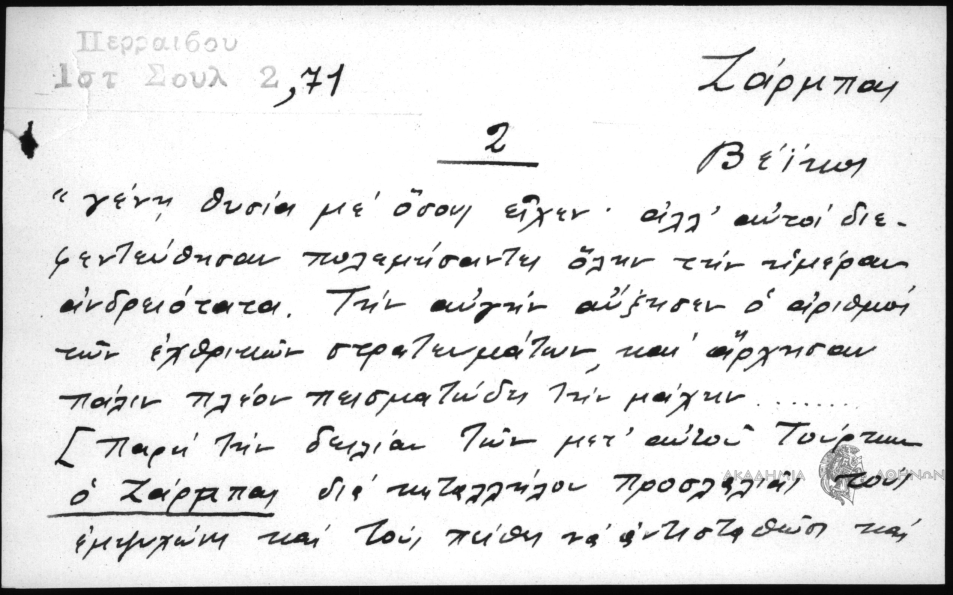 Περραιβου
Ιστ Σουλ 2,71
Ζάρμπας
2
Βέϊκος
"γένῃ θυσία μέ ὅσους εἶχεν· ἀλλ' αὐτοί διε-
φεντεύθησαν πολεμήσαντες ὅλην τήν ἡμέραν
ἀνδρειότατα. Τήν αὐγήν αὔξησεν ὁ ἀριθμός
τῶν ἐχθρικῶν στρατευμάτων, καί ἄρχησαν
πάλιν πλέον πεισματώδη τήν μάχην .......
[Παρά τήν δειλίαν τῶν μετ' αὐτοῦ Τούρκων
ὁ Ζάρμπας διά καταλλήλου προσλαλιᾶς τούς
ἐμψυχώνει καί τούς πείθει νά ἀντισταθῶσι καί
ΑΚΑΔΗΜΙΑ ΑΘΗΝΩΝ